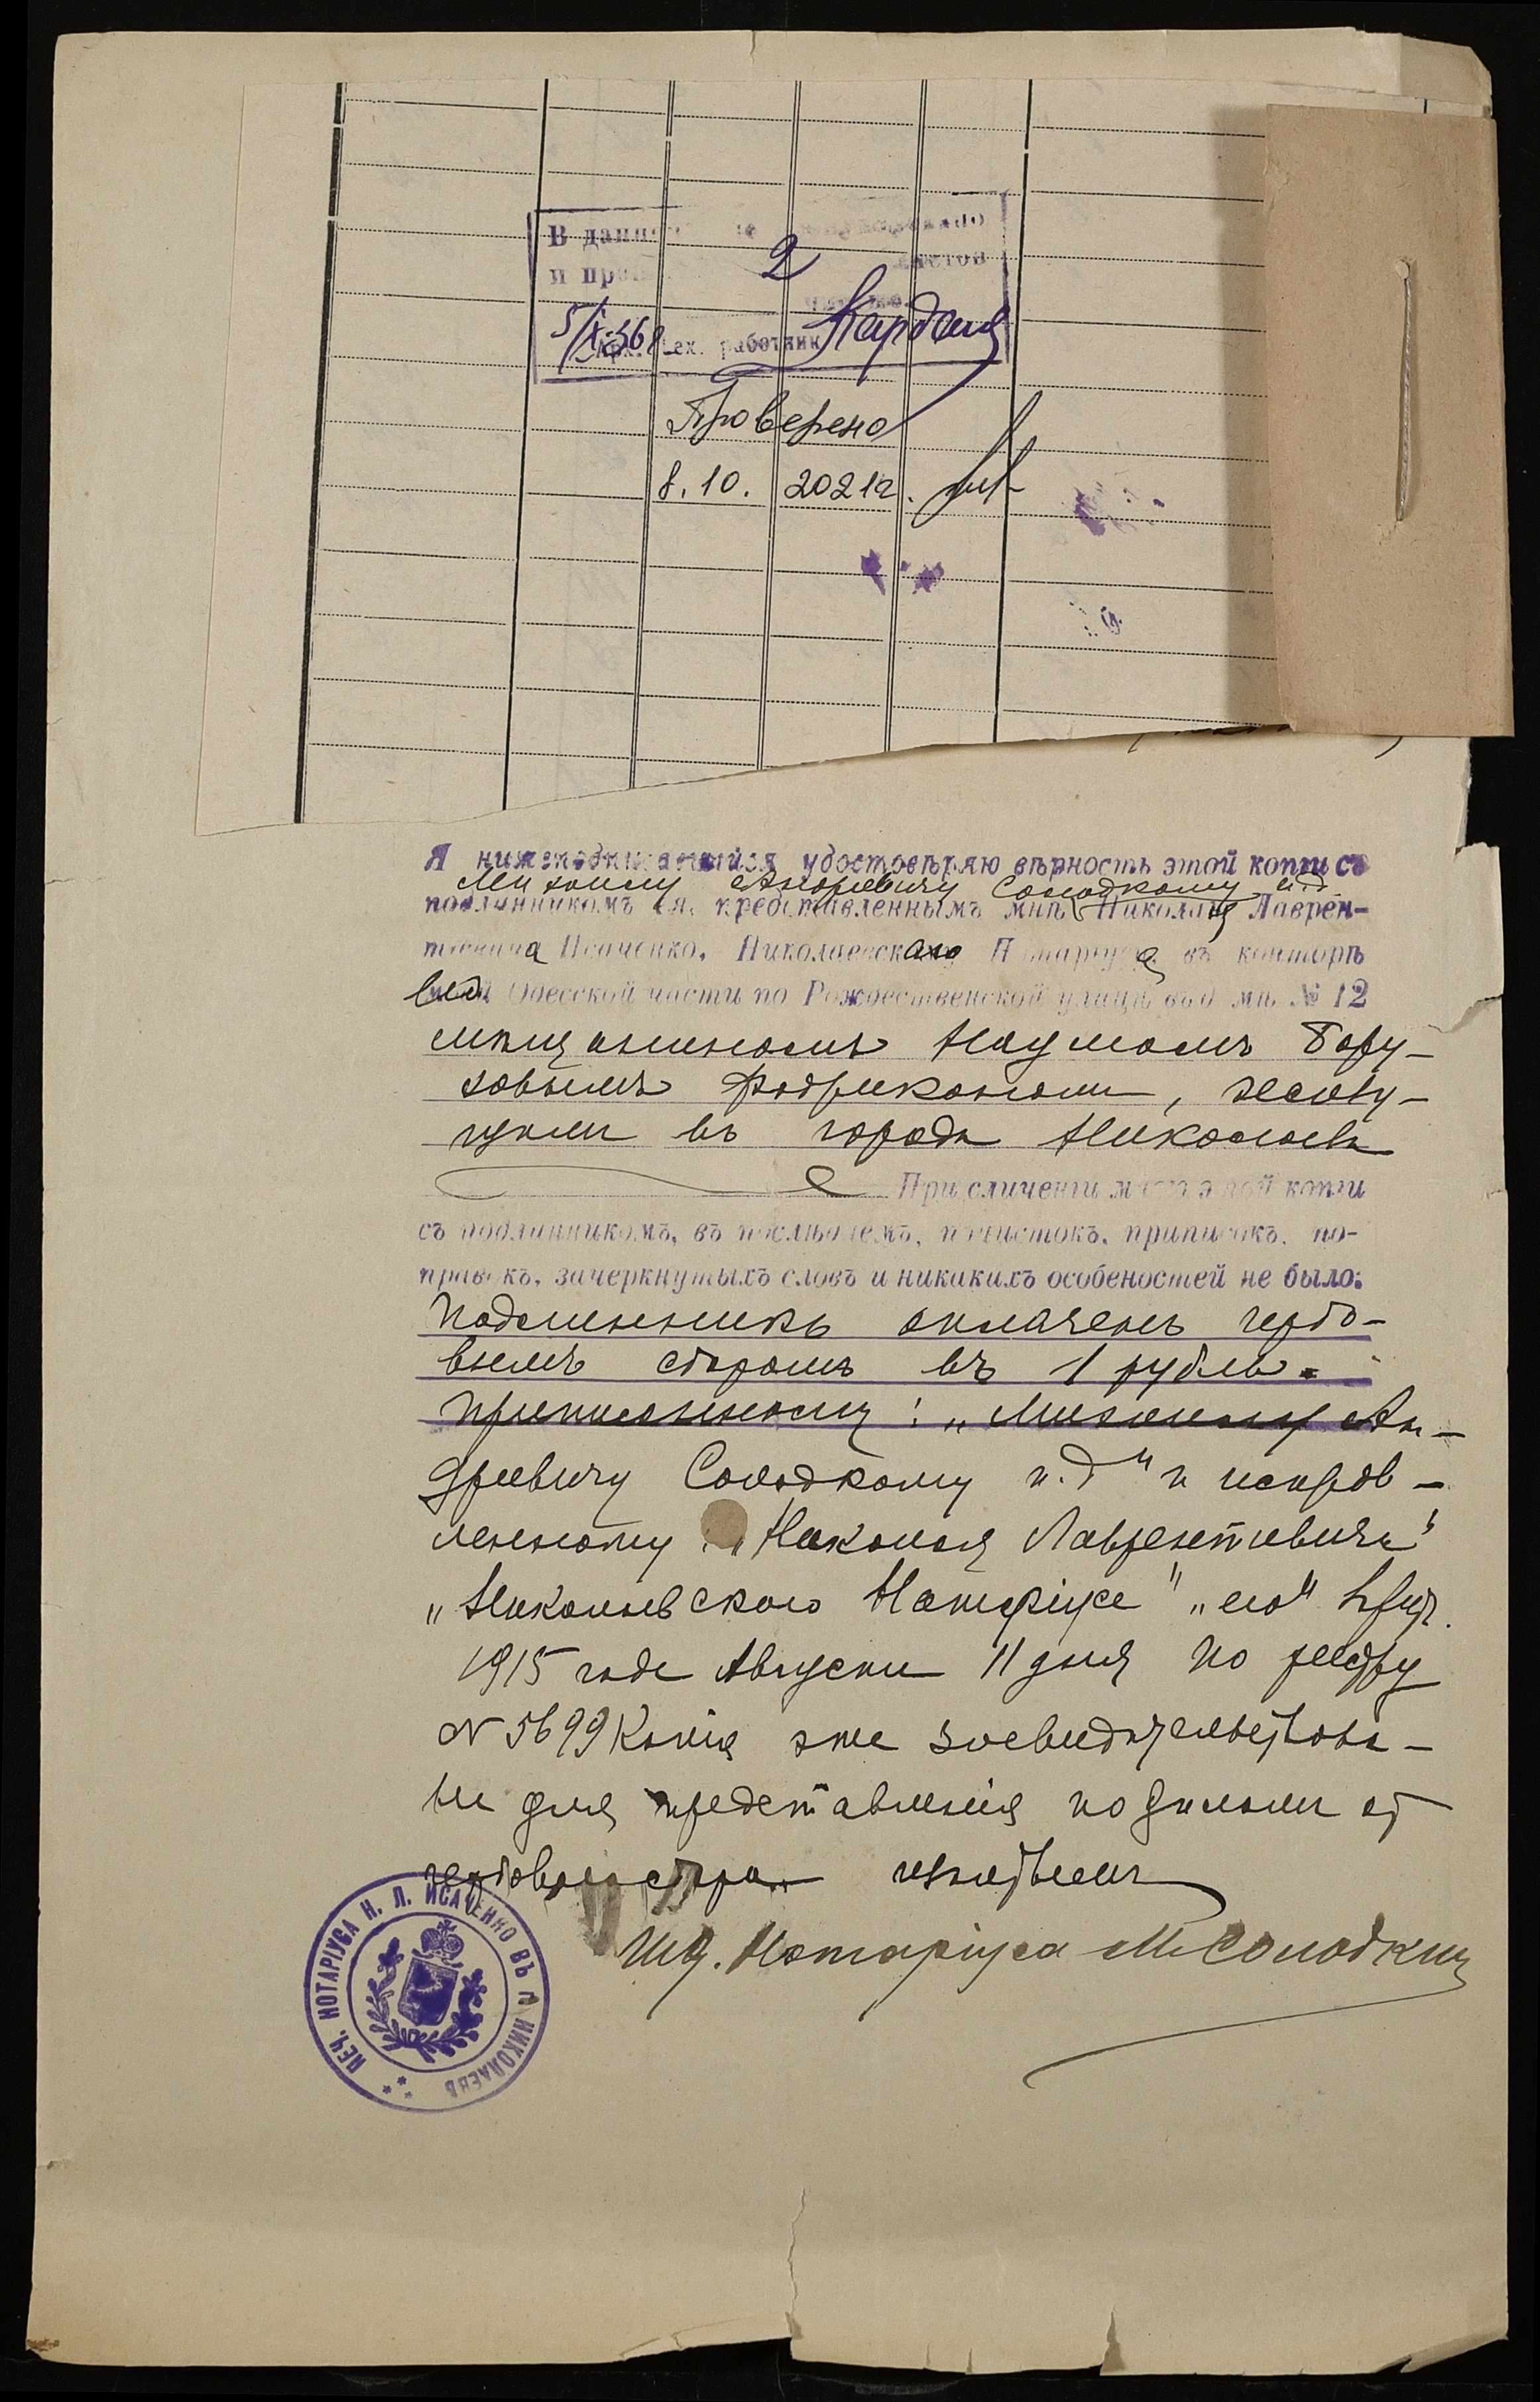 В данн
и про 2 листов
5/X-361 Арх. тех. работник
Проверено
8. 10. 2021г.
Я нижеподписавшийся удостовѣряю вѣрность этой копіи съ
Михаилу Андреевичу Солодкому и.д.
подлинникомъ ея, представленнымъ мнѣ Николая Лаврен-
тіевича Исаченко, Николаевскаго Нотаріуса въ конторѣ
его Одесской части по Рождественской улицѣ въ д мѣ № 12
мѣщаниномъ Наумомъ Бору-
ховымъ, живу-
щимъ въ городѣ Николаевѣ
При сличеніи мною этой копіи
съ подлинникомъ, въ послѣднемъ, почистокъ, приписокъ, по-
правокъ, зачеркнутыхъ словъ и никакихъ особеностей не было:
Подлинникъ оплаченъ гербо-
вымъ сборомъ въ 1 рубль.
Приписанному: „Михаилу Ан-
дреевичу Солодкому и.д." и исправ-
ленному: „Николая Лаврентіевича"
„Николаевскаго Нотаріуса" „его"
1915 года Августа 11 дня по реестру
N 5699 Копія эта засвидѣтельствова-
на для представленія по дѣламъ отъ
гербоваго сбора изъятымъ
И.д. Нотаріуса М Солодкій
ПЕЧ. НОТАРІУСА Н. Л. ИСАЧЕНКО ВЪ Г. НИКОЛАЕВѢ